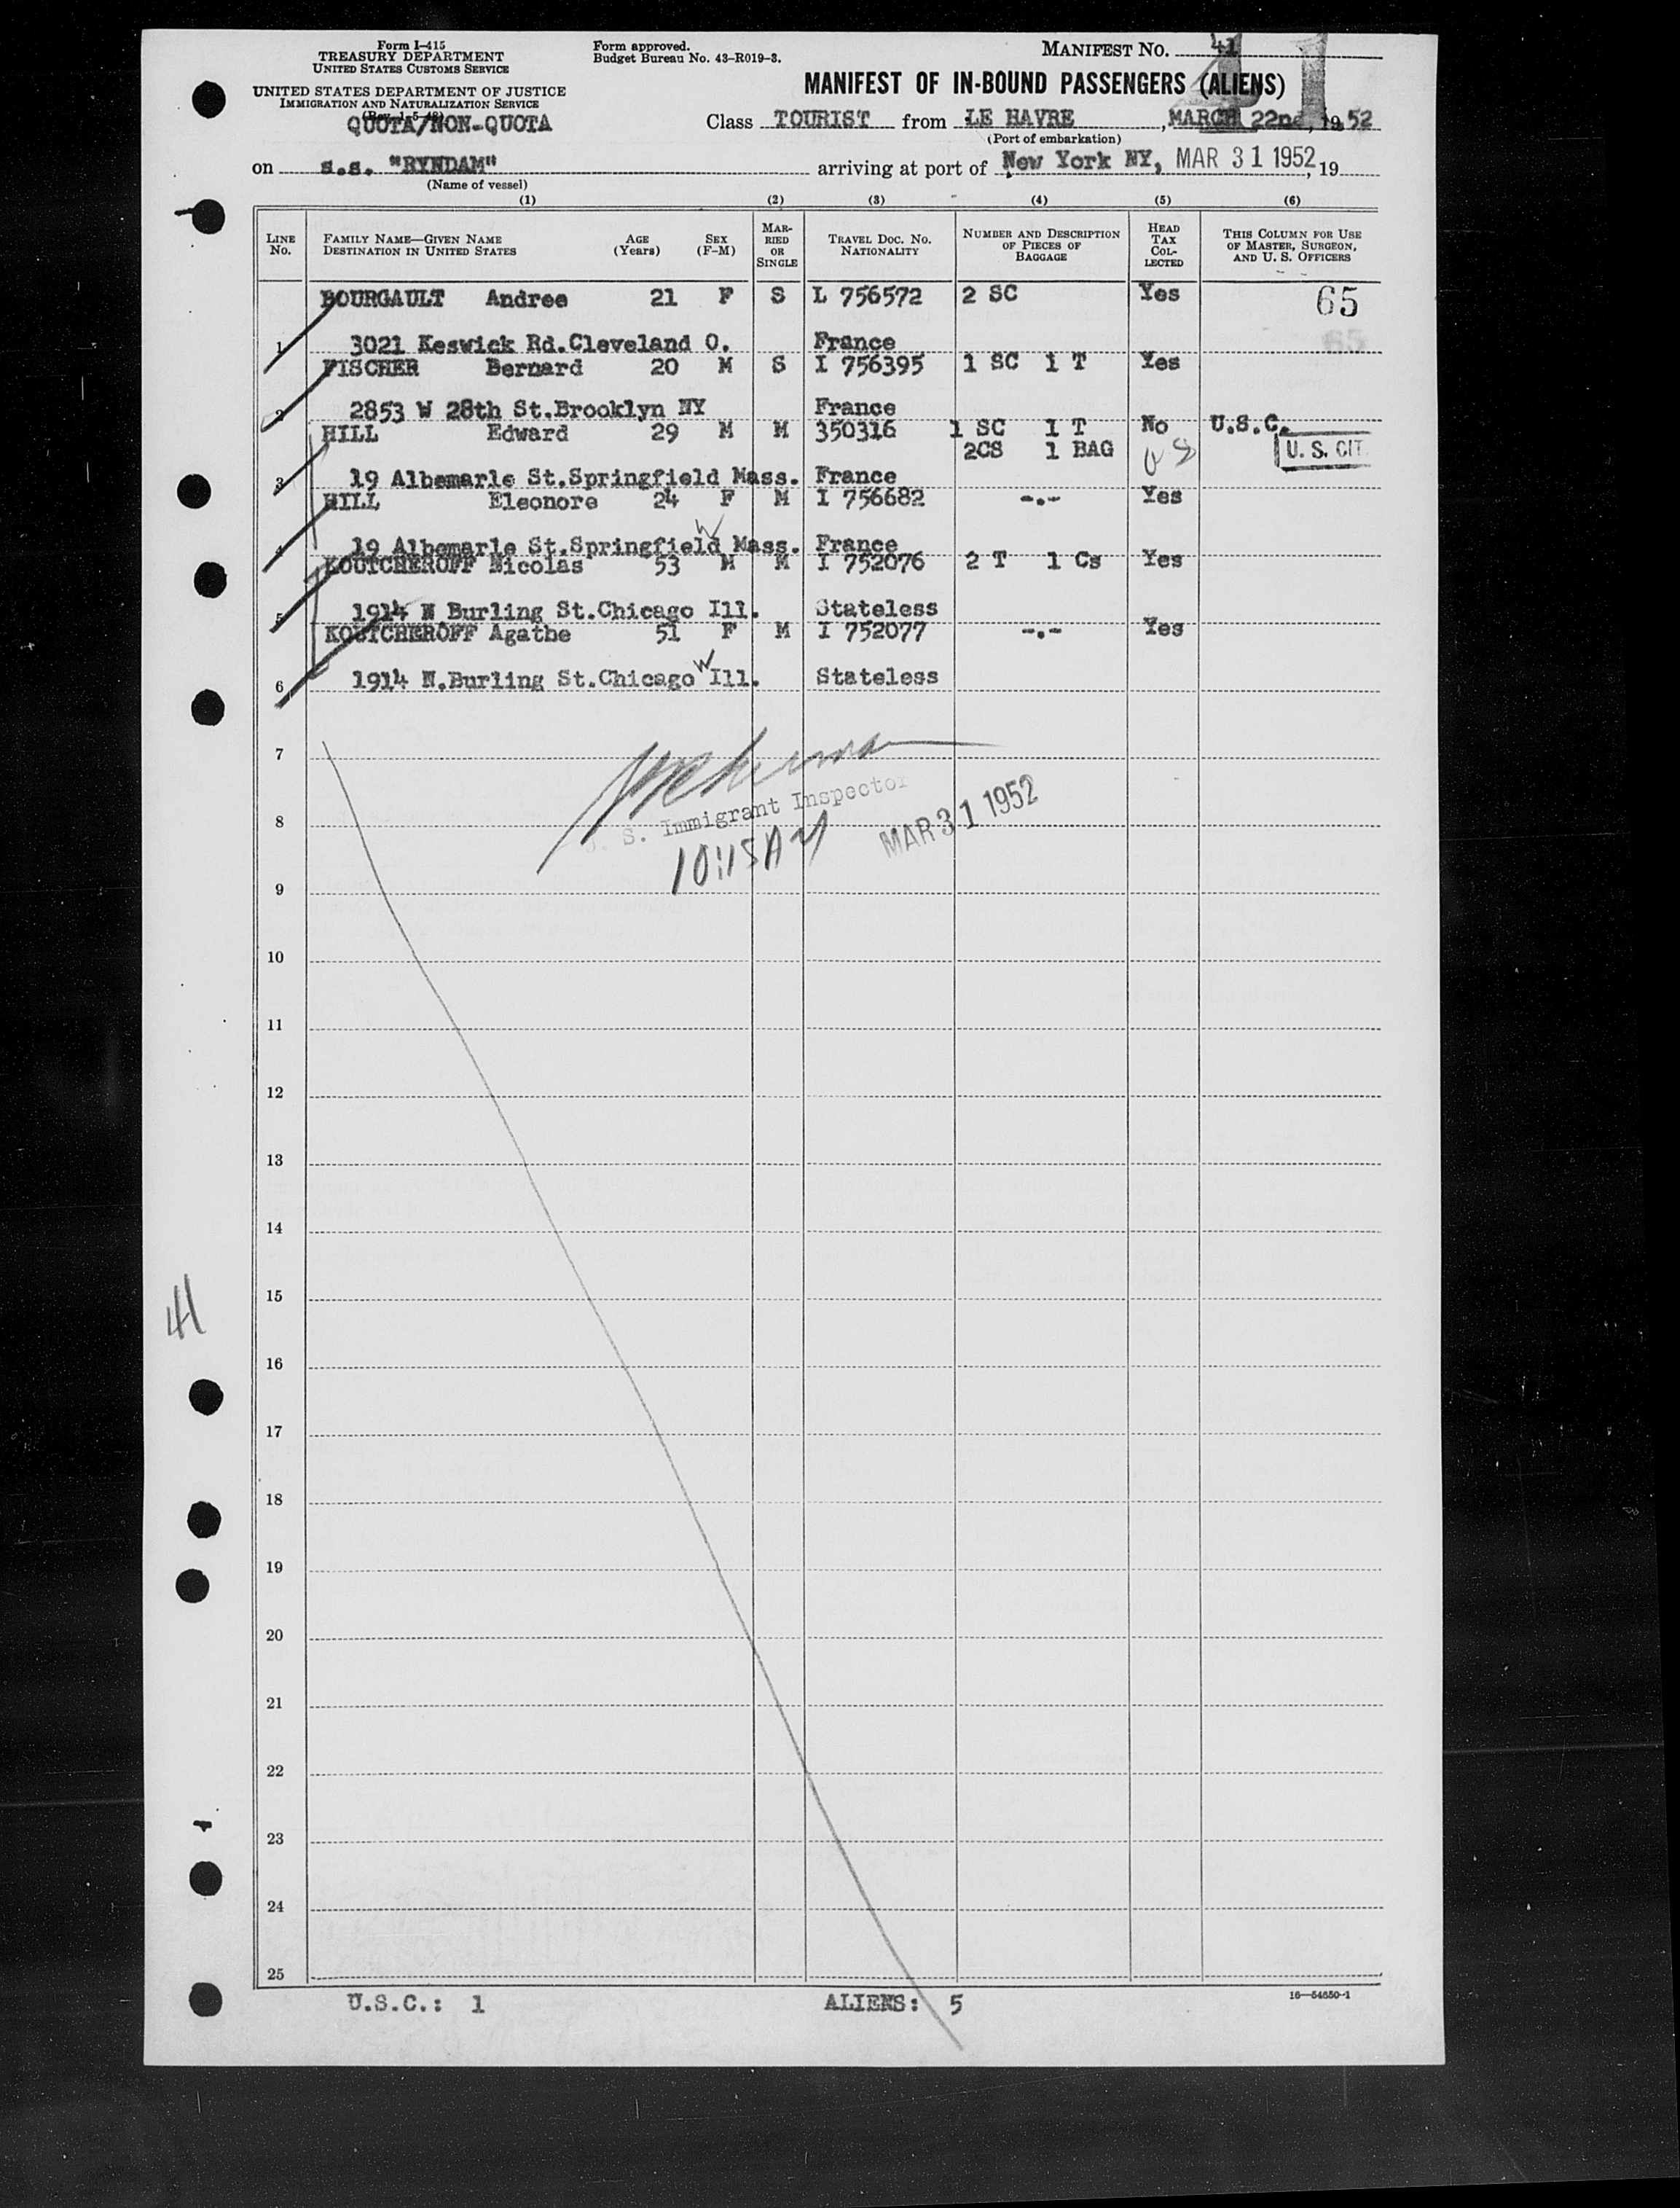 Form I-415
TREASURY DEPARTMENT
UNITED STATES CUSTOMS SERVICE
UNITED STATES DEPARTMENT OF JUSTICE
IMMIGRATION AND NATURALIZATION SERVICE
(Rev. 1-5-48)
QUOTA/NON-QUOTA
Form approved.
Budget Bureau No. 43-R019-3.
MANIFEST NO. 41
41
MANIFEST OF IN-BOUND PASSENGERS (ALIENS)
Class TOURIST from LE HAVRE, MARCH 22nd, 1952
(Port of embarkation)
on s.s. "RYNDAM" arriving at port of New York NY, MAR 31 1952, 19
(Name of vessel)
(1) (2) (3) (4) (5) (6)
LINE NO. FAMILY NAME—GIVEN NAME DESTINATION IN UNITED STATES AGE (Years) SEX (F-M) MARRIED OR SINGLE TRAVEL DOC. NO. NATIONALITY NUMBER AND DESCRIPTION OF PIECES OF BAGGAGE HEAD TAX COLLECTED THIS COLUMN FOR USE OF MASTER, SURGEON, AND U. S. OFFICERS
BOURGAULT Andree 21 F S L 756572 2 SC Yes 65
1 3021 Keswick Rd.Cleveland O. France 65
FISCHER Bernard 20 M S I 756395 1 SC 1 T Yes
2 2853 W 28th St.Brooklyn NY France
HILL Edward 29 M M 350316 1 SC 1 T No U.S.C.
2CS 1 BAG U. S. CIT
3 19 Albemarle St.Springfield Mass. France
HILL Eleonore 24 F M I 756682 -.- Yes
4 19 Albemarle St.Springfield Mass. France
KOUTCHEROFF Nicolas 53 M M I 752076 2 T 1 Cs Yes
5 1914 N Burling St.Chicago Ill. Stateless
KOUTCHEROFF Agathe 51 F M I 752077 -.- Yes
6 1914 N.Burling St.Chicago Ill. Stateless
7
S. Immigrant Inspector
8
MAR 31 1952
10:15AM
9
10
11
12
13
14
15
41
16
17
18
19
20
21
22
23
24
25
U.S.C.: 1 ALIENS: 5 16—54650-1